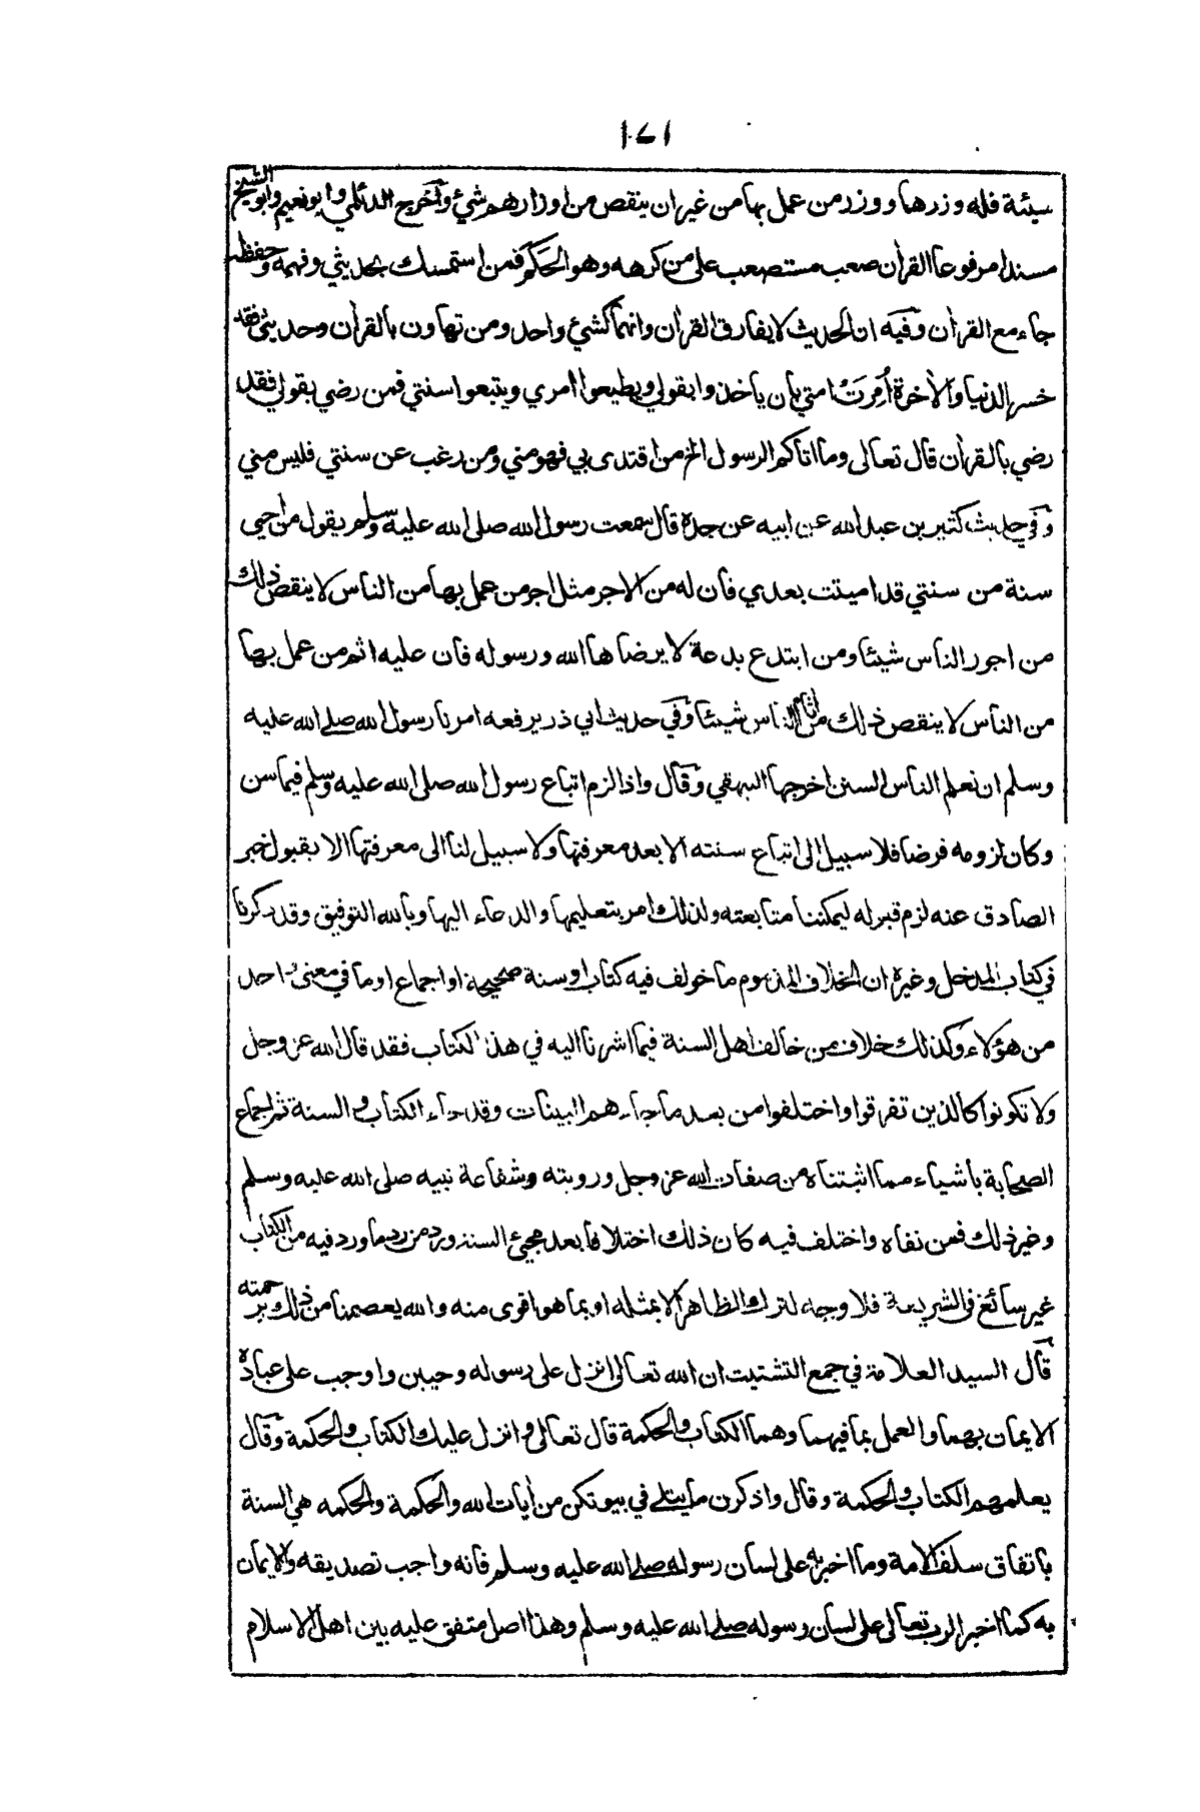 ١٤١
سيئة فله وزرها ووزر من عمل بها من غير ان ينقص من اوزارهم شيئ واخرج الديلمي وابو نعيم وابو الشيخ
مسندا مرفوعا القرأن صعب مستصعب على من كرهه وهو الحَكَم فمن استمسك بحديثي وفهمه وحفظه
جاء مع القرأن وفيه ان الحديث لا يفارق القرأن وانهما كشيئ واحد ومن تهاون بالقرأن وحديثي فقد
خسر الدنيا والأخرة أُمِرَتْ امتي بان ياخذوا بقولي ويطيعوا امري ويتبعوا سنتي فمن رضي بقولي فقد
رضي بالقرأن قال تعالى وما اتاكم الرسول الخ من اقتدى بي فهو مني ومن رغب عن سنتي فليس مني
وفي حديث كثير بن عبد الله عن ابيه عن جده قال سمعت رسول الله صلى الله عليه وسلم يقول من احيى
سنة من سنتي قد اميتت بعدي فان له من الاجر مثل اجر من عمل بها من الناس لا ينقص ذلك
من اجور الناس شيئا ومن ابتدع بدعة لا يرضاها الله ورسوله فان عليه اثم من عمل بها
من الناس لا ينقص ذلك من أثام الناس شيئا وفي حديث ابي ذر يرفعه امرنا رسول الله صلى الله عليه
وسلم ان نعلم الناس السنن اخرجها البيهقي وقال واذا لزم اتباع رسول الله صلى الله عليه وسلم فيما سن
وكان لزومه فرضا فلا سبيل الى اتباع سنته الا بعد معرفتها ولا سبيل لنا الى معرفتها الا بقبول خبر
الصادق عنه لزم قبوله ليمكننا متابعته ولذلك امر بتعليمها والدعاء اليها وبالله التوفيق وقد ذكرنا
في كتاب المدخل وغيره ان الخلاف المذموم ما خولف فيه كتاب او سنة صحيحة او اجماع او ما في معنى واحد
من هؤلاء وكذلك خلاف من خالف اهل السنة فيما اشرنا اليه في هذا الكتاب فقد قال الله عز وجل
ولا تكونوا كالذين تفرقوا واختلفوا من بعد ما جاءهم البينات وقد جاء الكتاب والسنة ثم اجماع
الصحابة باشياء مما اثبتناه من صفات الله عز وجل ورويته وشفاعة نبيه صلى الله عليه وسلم
وغير ذلك فمن نفاه واختلف فيه كان ذلك اختلافا بعد مجيئ السنة ورد من رد ما ورد فيه من الكتاب
غير سائغ في الشريعة فلا وجه لترك الظاهر الا بمثله او بما هو اقوى منه والله يعصمنا من ذلك برحمته
قال السيد العلامة في جمع التشتيت ان الله تعالى انزل على رسوله وحيين واوجب على عباده
الايمان بهما والعمل بما فيهما وهما الكتاب والحكمة قال تعالى وانزل عليك الكتاب والحكمة وقال
يعلمهم الكتاب والحكمة وقال واذكرن ما يتلى في بيوتكن من أيات الله والحكمة والحكمه هي السنة
باتفاق سلف الامة وما اخبر به على لسان رسوله صلى الله عليه وسلم فانه واجب تصديقه والايمان
به كما اخبر الرب تعالى على لسان رسوله صلى الله عليه وسلم وهذا اصل متفق عليه بين اهل الاسلام